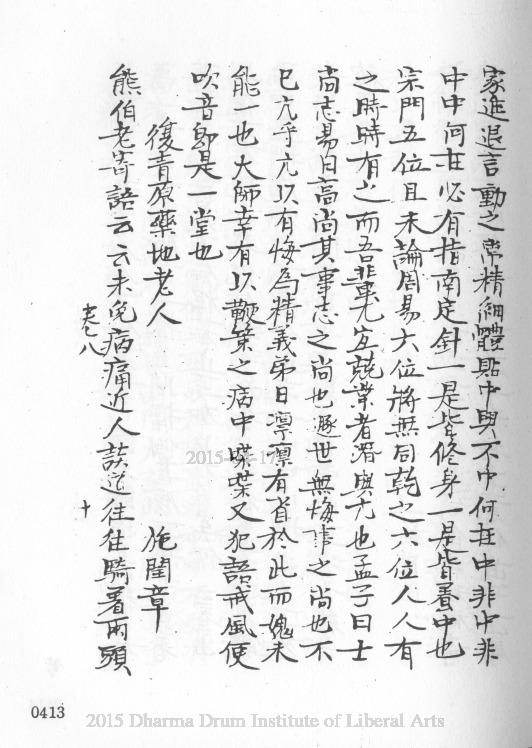 家進退言動之常精細體點中與不中何在中非中非
中中何在必有指南定針一是皆修身一是皆看中也
宗門五位且未論周易六位將無同乾之六位人人有
之時時有之而吾輩尤宜兢業者潛與亢也孟子曰士
尚志易曰高尚其事志之尚也遯世無悔事之尚也不
已亢乎亢以有悔為精義弟日凜凜有省於此而愧未
能一也大師幸有以鞭策之病中喋喋又犯語戒風便
吹音即是一堂也
復青原藥地老人
施閏章
熊伯老寄語云云未免病痛近人談道往往騎著兩頭
卷之八
十
0413
2015 Dharma Drum Institute of Liberal Arts